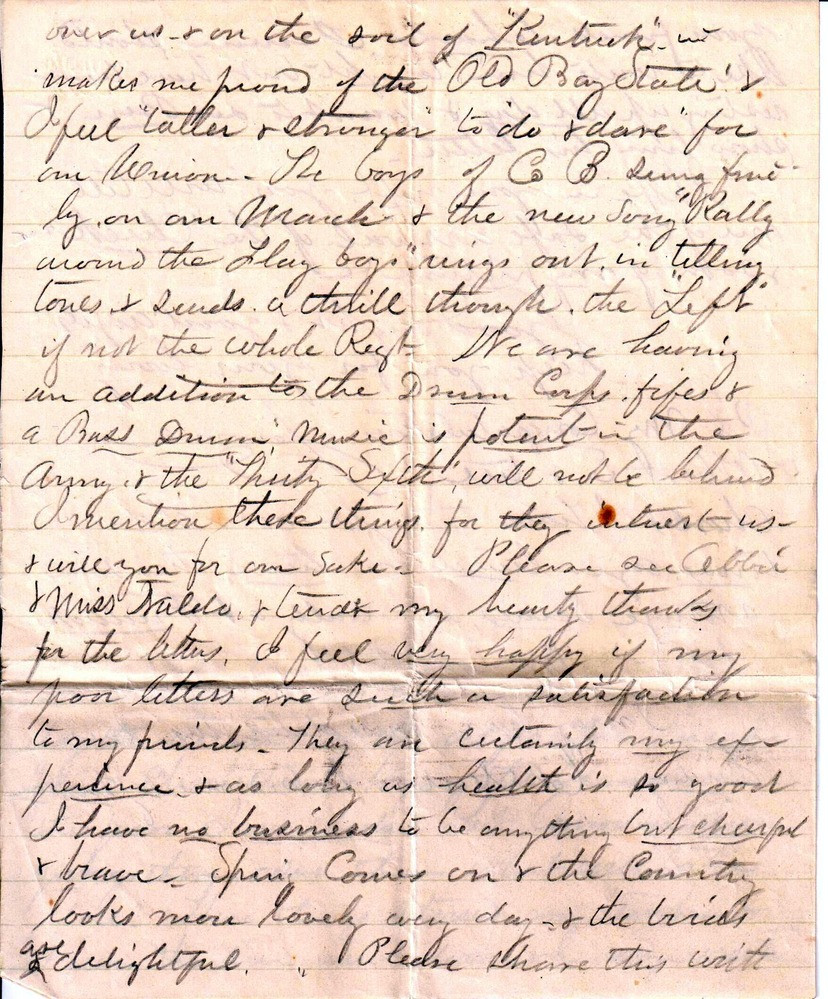 over us - & on the soil of "Kentuck" - it
makes me proud of the Old Bay State! &
I feel "taller & stronger" to do & dare" for
our Union - The boys of Co B. sing fine-
ly, on our March & the new Song "Rally
around the Flag boys" rings out, in telling
tones, & sends a thrill through, the "Left"
if not the whole Regt. We are having
an addition to the Drum Corps, fifes &
a Bass Drum, Music is potent in the
Army, & the "Thirty Sixth", will not be behind
I mention these things, for they interest us -
& will you for our sake - Please see Abbie
& Miss Faldo, & tender my hearty thanks
for the letters, I feel very happy if my
poor letters are such a satisfaction
to my friends - They are certainly my ex-
perience, & as long as health is so good
I have no business to be anything but cheerful
& brave - Spring Comes on & the Country
looks more lovely every day - & the birds
are delightful. Please share this with